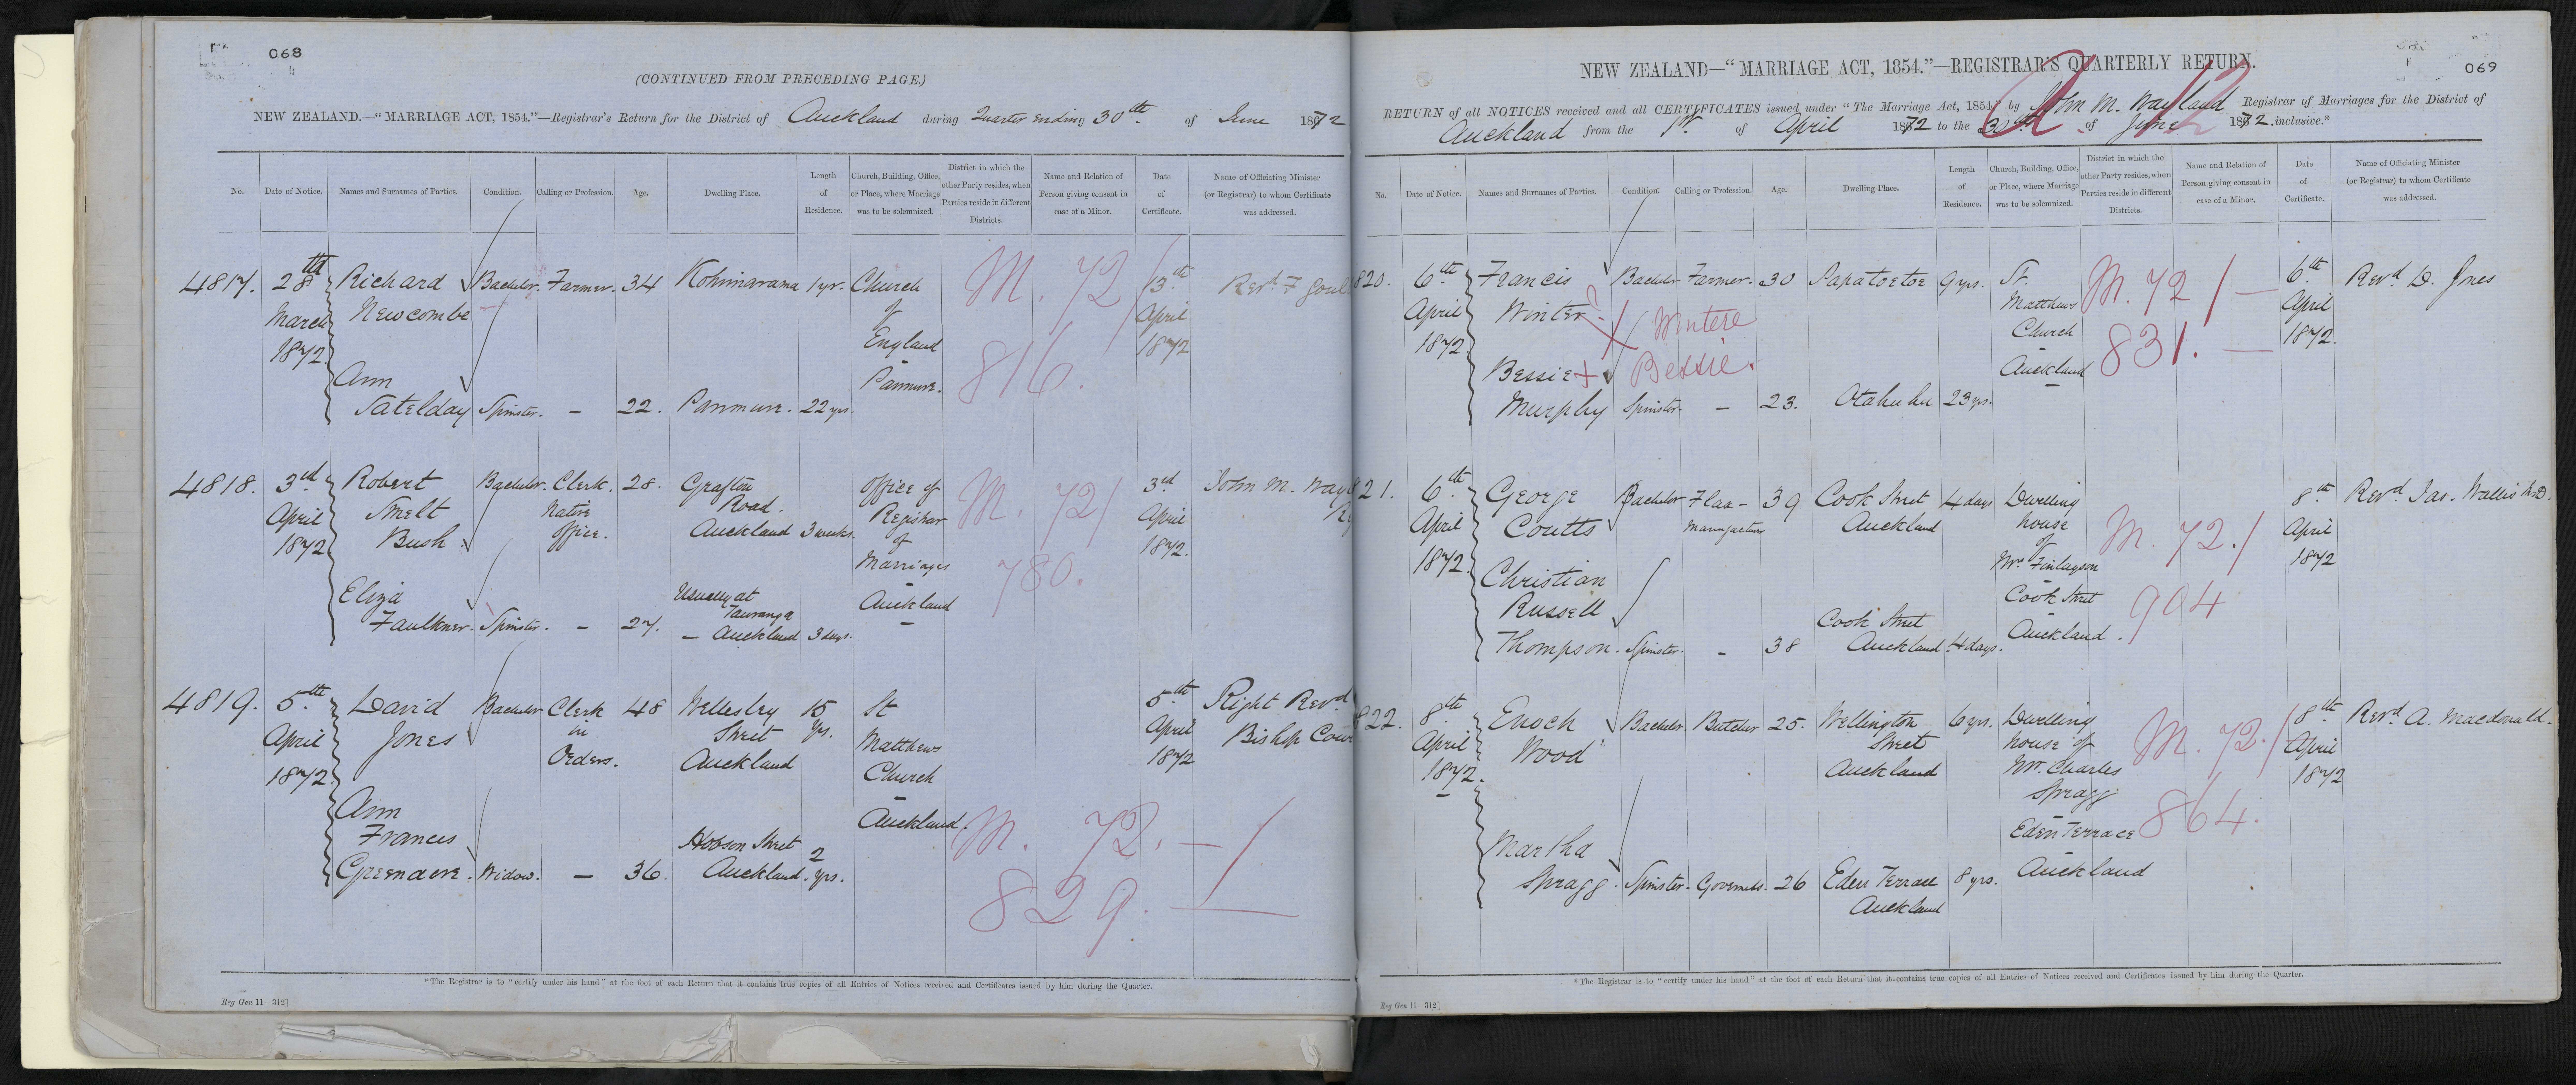 068
(CONTINUED FROM PRECEDING PAGE.)
NEW ZEALAND.—“MARRIAGE ACT, 1854.”—Registrar's Return for the District of Auckland during Quarter ending 30th of June 1872
No. Date of Notice. Names and Surnames of Parties. Condition. Calling or Profession. Age. Dwelling Place. Length of Residence. Church, Building, Office, or Place, where Marriage was to be solemnized. District in which the other Party resides, when Parties reside in different Districts. Name and Relation of Person giving consent in case of a Minor. Date of Certificate. Name of Officiating Minister (or Registrar) to whom Certificate was addressed.
4817. 28th Richard Bachelor. Farmer. 34 Kohimarama 1 yr. Church M. 72/ 13th Revd F Goul
March Newcombe of April
1872 England 816. 1872
Ann Panmure.
Satelday Spinster. — 22. Panmure. 22 yrs.
4818. 3rd Robert Bachelor. Clerk. 28. Grafton Office of M. 72/ 3rd John M. Way
April Smelt Native Road. Registrar April
1872 Bush. Office. Auckland 3 weeks. of 1872.
Marriages 780.
Eliza Usually at Auckland
Faulkner. Spinster. — 27. Tauranga
— Auckland 3 days.
4819. 5th David Bachelor Clerk 48 Wellesley 15 St 5th Right Revd
April Jones in Street yrs. Matthews April Bishop Cow
1872. Orders. Auckland Church 1872
Ann Auckland. M. 72. — /
Frances Hobson Street 2
Greenacre. Widow. — 36. Auckland. yrs. 829. —
*The Registrar is to “certify under his hand” at the foot of each Return that it contains true copies of all Entries of Notices received and Certificates issued by him during the Quarter.
Reg Gen 11—312]
069
NEW ZEALAND—“MARRIAGE ACT, 1854.”—REGISTRAR'S QUARTERLY RETURN.
RETURN of all NOTICES received and all CERTIFICATES issued under “The Marriage Act, 1854,” by John M. Wayland Registrar of Marriages for the District of
Auckland from the 1st of April 1872 to the 30th of June 1872. inclusive.*
No. Date of Notice. Names and Surnames of Parties. Condition. Calling or Profession. Age. Dwelling Place. Length of Residence. Church, Building, Office, or Place, where Marriage was to be solemnized. District in which the other Party resides, when Parties reside in different Districts. Name and Relation of Person giving consent in case of a Minor. Date of Certificate. Name of Officiating Minister (or Registrar) to whom Certificate was addressed.
820. 6th Francis Bachelor Farmer. 30 Papatoetoe 9 yrs. St. M. 72/ — 6th Revd D. Jones
April Winter ? X Wintere Matthews April
1872. Church 831. — 1872.
Bessie + Bessie. Auckland
Murphy Spinster. — 23. Otahuhu 23 yrs.
821. 6th George Bachelor Flax- 39 Cook Street 4 days Dwelling 8th Revd Jas. Wallis M.D.
April Coutts Manufacturer Auckland house M. 72./ April
1872. of 1872
Christian Mr. Finlayson
Russell Cook Street Cook Street 904
Thompson. Spinster. — 38 Auckland 4 days. Auckland.
822. 8th Enoch Bachelor. Butcher 25. Wellington 6 yrs. Dwelling M. 72./ 8th Revd A. Macdonald.
April Wood Street house of April
1872. Auckland Mr. Charles 1872
Spragg 864.
Martha Eden Terrace
Spragg. Spinster. Governess. 26 Eden Terrace 8 yrs. Auckland
Auckland
*The Registrar is to “certify under his hand” at the foot of each Return that it contains true copies of all Entries of Notices received and Certificates issued by him during the Quarter.
Reg Gen 11—312]